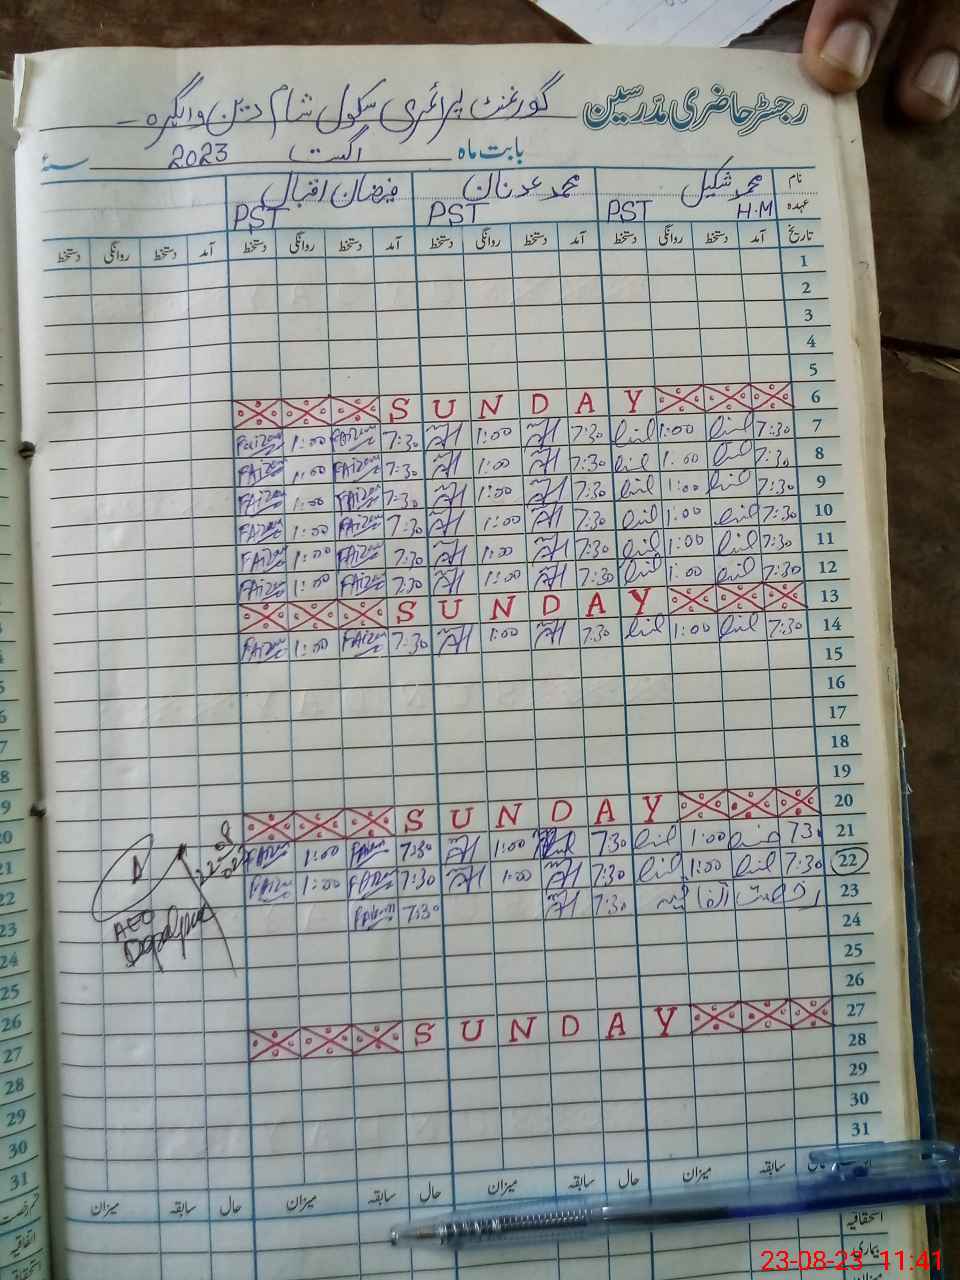 رجسٹر حاضری مدرسین گورنمنٹ پرائمری سکول شام دین وایگرہ
بابت ماہ اگست 2023 سنۂ
نام محمد شکیل محمد عدنان فیضان اقبال
عہدہ H.M PST PST PST
تاریخ آمد دستخط روانگی دستخط آمد دستخط روانگی دستخط آمد دستخط روانگی دستخط آمد دستخط روانگی دستخط
1
2
3
4
5
6 SUNDAY
7 7:30 1:00 7:30 1:00 7:30 FAizan 1:00 Faizan
8 7:30 1:00 7:30 1:00 7:30 FAizan 1:00 FAizan
9 7:30 1:00 7:30 1:00 7:30 FAizan 1:00 FAizan
10 7:30 1:00 7:30 1:00 7:30 FAizan 1:00 FAizan
11 7:30 1:00 7:30 1:00 7:30 FAizan 1:00 FAizan
12 7:30 1:00 7:30 1:00 7:30 FAizan 1:00 FAizan
13 SUNDAY
14 7:30 1:00 7:30 1:00 7:30 FAizan 1:00 FAizan
15
16
17
18
19
20 SUNDAY
21 7:30 1:00 7:30 1:00 7:30 FAizan 1:00 FAizan
22 7:30 1:00 7:30 1:00 7:30 FAizan 1:00 FAizan
23 رخصت اتفاقیہ 7:30 7:30 FAizan
22-8
AEO
Depalpur
24
25
26
27 SUNDAY
28
29
30
31
سابقہ میزان حال سابقہ میزان حال سابقہ میزان حال سابقہ میزان
استحقاقیہ
بیماری
میزان
20
21
22
23
24
25
26
27
28
29
30
31
اتفاقیہ
23-08-23 11:41